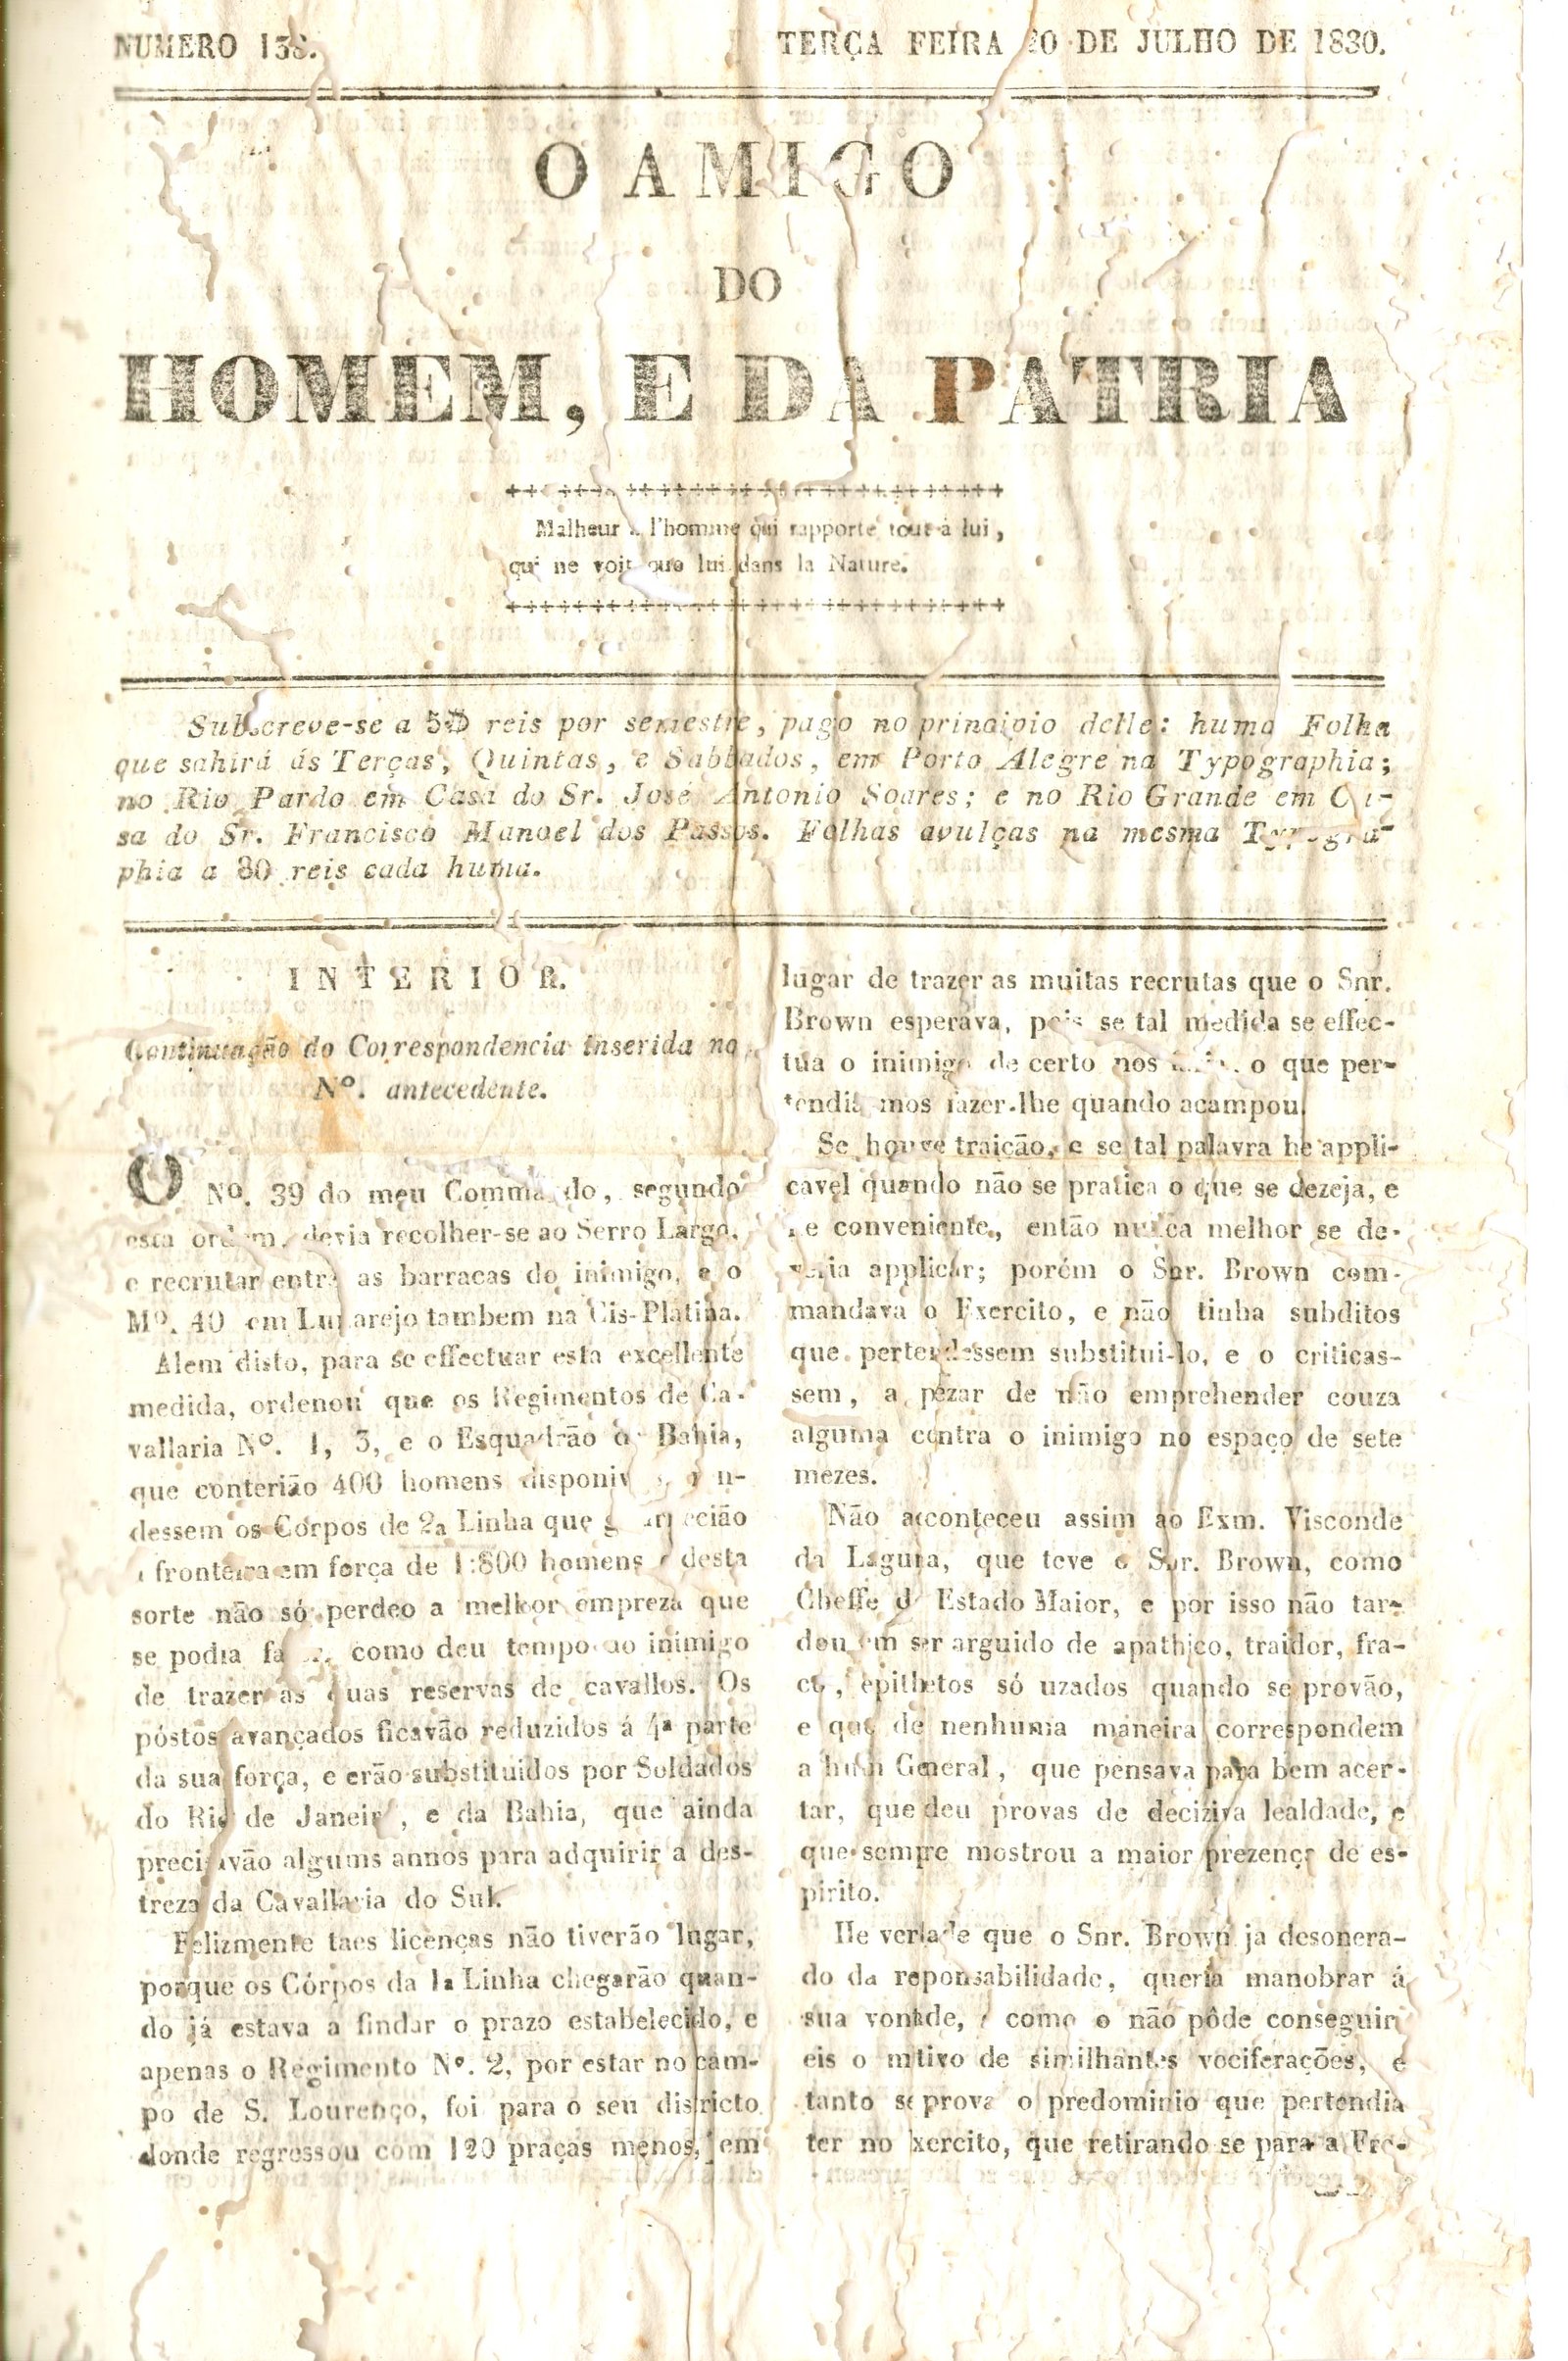 NUMERO 138.
TERÇA FEIRA 20 DE JULHO DE 1830.
O AMIGO
DO
HOMEM, E DA PATRIA
Malheur l'homme qui rapporte tout à lui,
qui ne voit que lui dans la Nature.
Subscreve-se a 5$ reis por semestre, pago no principio delle: huma Folha
que sahirá ás Terças, Quintas, e Sabbados, em Porto Alegre na Typographia;
no Rio Pardo em Casa do Sr. José Antonio Soares; e no Rio Grande em Ca-
sa do Sr. Francisco Manoel dos Passos. Folhas avulças na mesma Typogra-
phia a 80 reis cada huma.
INTERIOR.
Continuação do Correspondencia inserida no
Nº. antecedente.
O Nº. 39 do meu Commando, segundo
esta ordem, devia recolher-se ao Serro Largo,
e recrutar entre as barracas do inimigo, e o
Mº. 40 em Lunarejo tambem na Cis-Platina.
Alem disto, para se effectuar esta excellente
medida, ordenou que os Regimentos de Ca-
vallaria Nº. 1, 3, e o Esquadrão da Bahia,
que conterião 400 homens disponiv
dessem os Córpos de 2a Linha que guarnecião
a fronteira em força de 1:800 homens e desta
sorte não só perdeo a melhor empreza que
se podia fazer, como deu tempo ao inimigo
de trazer as suas reservas de cavallos. Os
póstos avançados ficavão reduzidos á 4ª parte
da sua força, e erão substituidos por Soldados
do Rio de Janeiro, e da Bahia, que ainda
precisavão algums annos para adquirir a des-
treza da Cavallaria do Sul.
Felizmente taes licenças não tiverão lugar,
porque os Córpos da 1a Linha chegarão quan-
do já estava a findar o prazo estabelecido, e
apenas o Regimento Nº. 2, por estar no cam-
po de S. Lourenço, foi para o seu districto
donde regressou com 120 praças menos, em
lugar de trazer as muitas recrutas que o Snr.
Brown esperava, pois se tal medida se effec-
tua o inimigo de certo nos o que per-
tendia mos fazer-lhe quando acampou.
Se houve traição, e se tal palavra he appli-
cavel quando não se pratica o que se dezeja, e
he conveniente, então nunca melhor se de-
veria applicar; porém o Snr. Brown com-
mandava o Exercito, e não tinha subditos
que pertendessem substitui-lo, e o criticas-
sem, a pezar de não emprehender couza
alguma contra o inimigo no espaço de sete
mezes.
Não aconteceu assim ao Exm. Visconde
da Laguna, que teve o Snr. Brown, como
Cheffe d' Estado Maior, e por isso não tar-
dou em ser arguido de apathico, traidor, fra-
co, epithetos só uzados quando se provão,
e que de nenhuma maneira correspondem
a hum General, que pensava para bem acer-
tar, que deu provas de deciziva lealdade, e
que sempre mostrou a maior prezença de es-
pirito.
He verdade que o Snr. Brown ja desonera-
do da reponsabilidade, queria manobrar á
sua vontade, e como o não pôde conseguir
eis o mtivo de similhantes vociferações, e
tanto se prova o predominio que pertendia
ter no Exercito, que retirando se para a Fre-